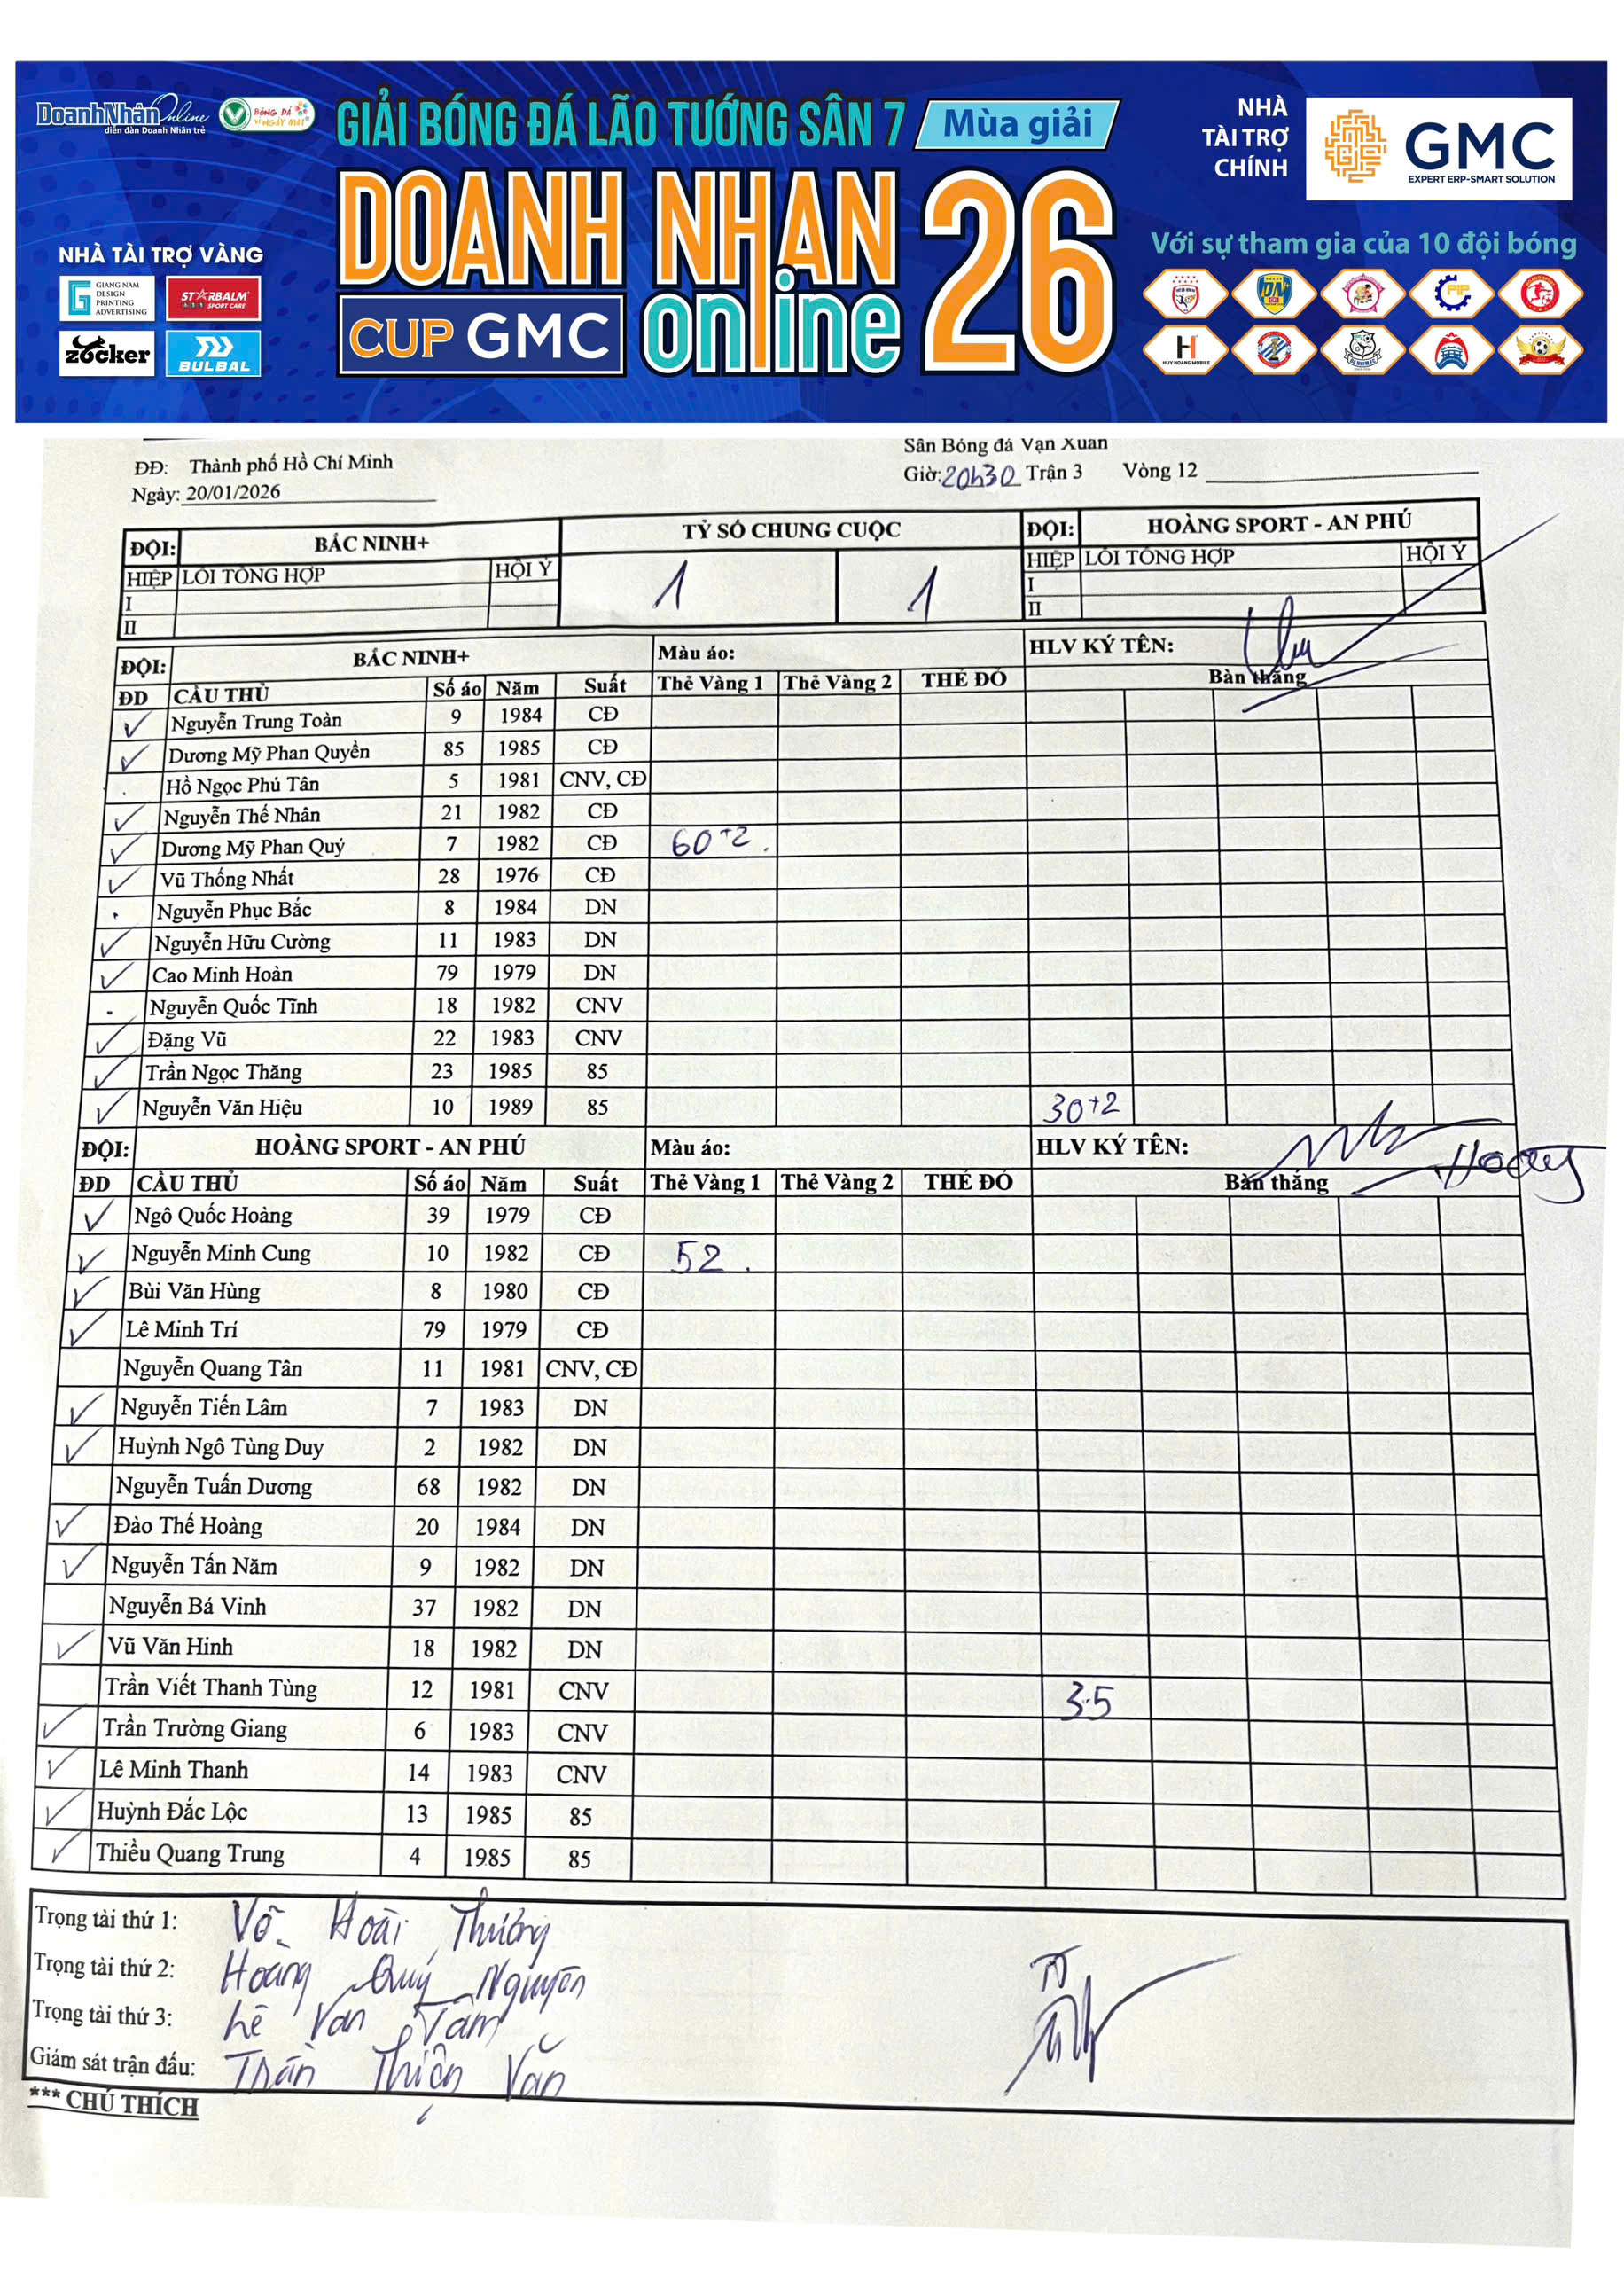 DoanhNhânOnline
diễn đàn Doanh Nhân trẻ
BÓNG ĐÁ
VÌ NGÀY MAI
GIẢI BÓNG ĐÁ LÃO TƯỚNG SÂN 7 Mùa giải
DOANH NHÂN 26
CUP GMC online
NHÀ TÀI TRỢ VÀNG
GIANG NAM
DESIGN
PRINTING
ADVERTISING
STARBALM
SPORT CARE
zocker
BULBAL
NHÀ
TÀI TRỢ
CHÍNH
GMC
EXPERT ERP-SMART SOLUTION
Với sự tham gia của 10 đội bóng
PIP
HUY HOANG MOBILE
Sân Bóng đá Vạn Xuân
ĐĐ: Thành phố Hồ Chí Minh
Giờ: 20h30 Trận 3 Vòng 12
Ngày: 20/01/2026
ĐỘI: BẮC NINH+ TỶ SỐ CHUNG CUỘC ĐỘI: HOÀNG SPORT - AN PHÚ
HIỆP LỖI TỔNG HỢP HỘI Ý 1 1 HIỆP LỖI TỔNG HỢP HỘI Ý
I I
II II
ĐỘI: BẮC NINH+ Màu áo: HLV KÝ TÊN:
ĐD CẦU THỦ Số áo Năm Suất Thẻ Vàng 1 Thẻ Vàng 2 THẺ ĐỎ Bàn thắng
✓ Nguyễn Trung Toàn 9 1984 CĐ
✓ Dương Mỹ Phan Quyền 85 1985 CĐ
Hồ Ngọc Phú Tân 5 1981 CNV, CĐ
✓ Nguyễn Thế Nhân 21 1982 CĐ
✓ Dương Mỹ Phan Quý 7 1982 CĐ 60+2
✓ Vũ Thống Nhất 28 1976 CĐ
Nguyễn Phục Bắc 8 1984 DN
✓ Nguyễn Hữu Cường 11 1983 DN
✓ Cao Minh Hoàn 79 1979 DN
Nguyễn Quốc Tĩnh 18 1982 CNV
✓ Đặng Vũ 22 1983 CNV
✓ Trần Ngọc Thăng 23 1985 85
✓ Nguyễn Văn Hiệu 10 1989 85 30+2
ĐỘI: HOÀNG SPORT - AN PHÚ Màu áo: HLV KÝ TÊN: Hoàng
ĐD CẦU THỦ Số áo Năm Suất Thẻ Vàng 1 Thẻ Vàng 2 THẺ ĐỎ Bàn thắng
✓ Ngô Quốc Hoàng 39 1979 CĐ
✓ Nguyễn Minh Cung 10 1982 CĐ 52
✓ Bùi Văn Hùng 8 1980 CĐ
✓ Lê Minh Trí 79 1979 CĐ
Nguyễn Quang Tân 11 1981 CNV, CĐ
✓ Nguyễn Tiến Lâm 7 1983 DN
✓ Huỳnh Ngô Tùng Duy 2 1982 DN
Nguyễn Tuấn Dương 68 1982 DN
✓ Đào Thế Hoàng 20 1984 DN
✓ Nguyễn Tấn Năm 9 1982 DN
Nguyễn Bá Vinh 37 1982 DN
✓ Vũ Văn Hinh 18 1982 DN
Trần Viết Thanh Tùng 12 1981 CNV 35
✓ Trần Trường Giang 6 1983 CNV
✓ Lê Minh Thanh 14 1983 CNV
✓ Huỳnh Đắc Lộc 13 1985 85
✓ Thiều Quang Trung 4 1985 85
Trọng tài thứ 1: Võ Hoài Thương
Trọng tài thứ 2: Hoàng Quý Nguyên
Trọng tài thứ 3: Lê Văn Tâm
Giám sát trận đấu: Trần Thiện Văn
*** CHÚ THÍCH